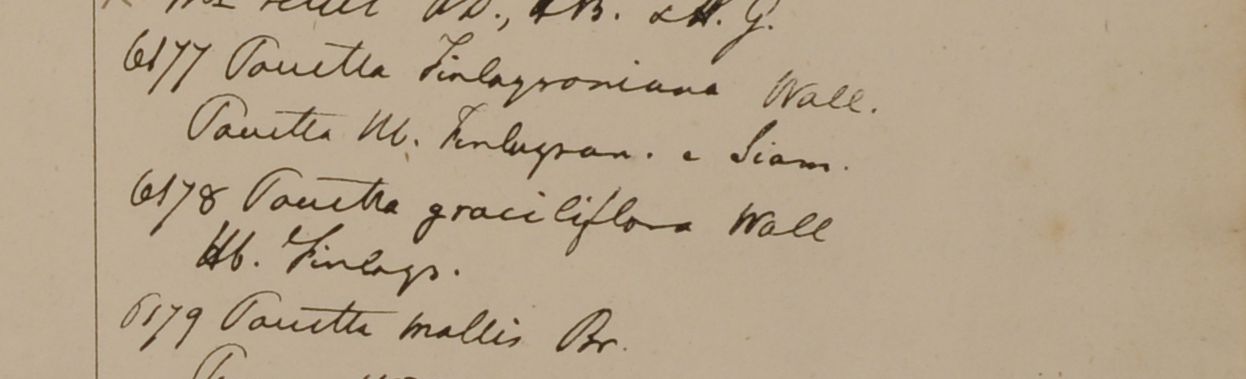 6177 Pavetta Finlaysoniana Wall.
Pavetta Hb. Finlayson. e Siam.
6178 Pavetta graciliflora Wall
Hb. Finlays.
6179 Pavetta mollis Br.